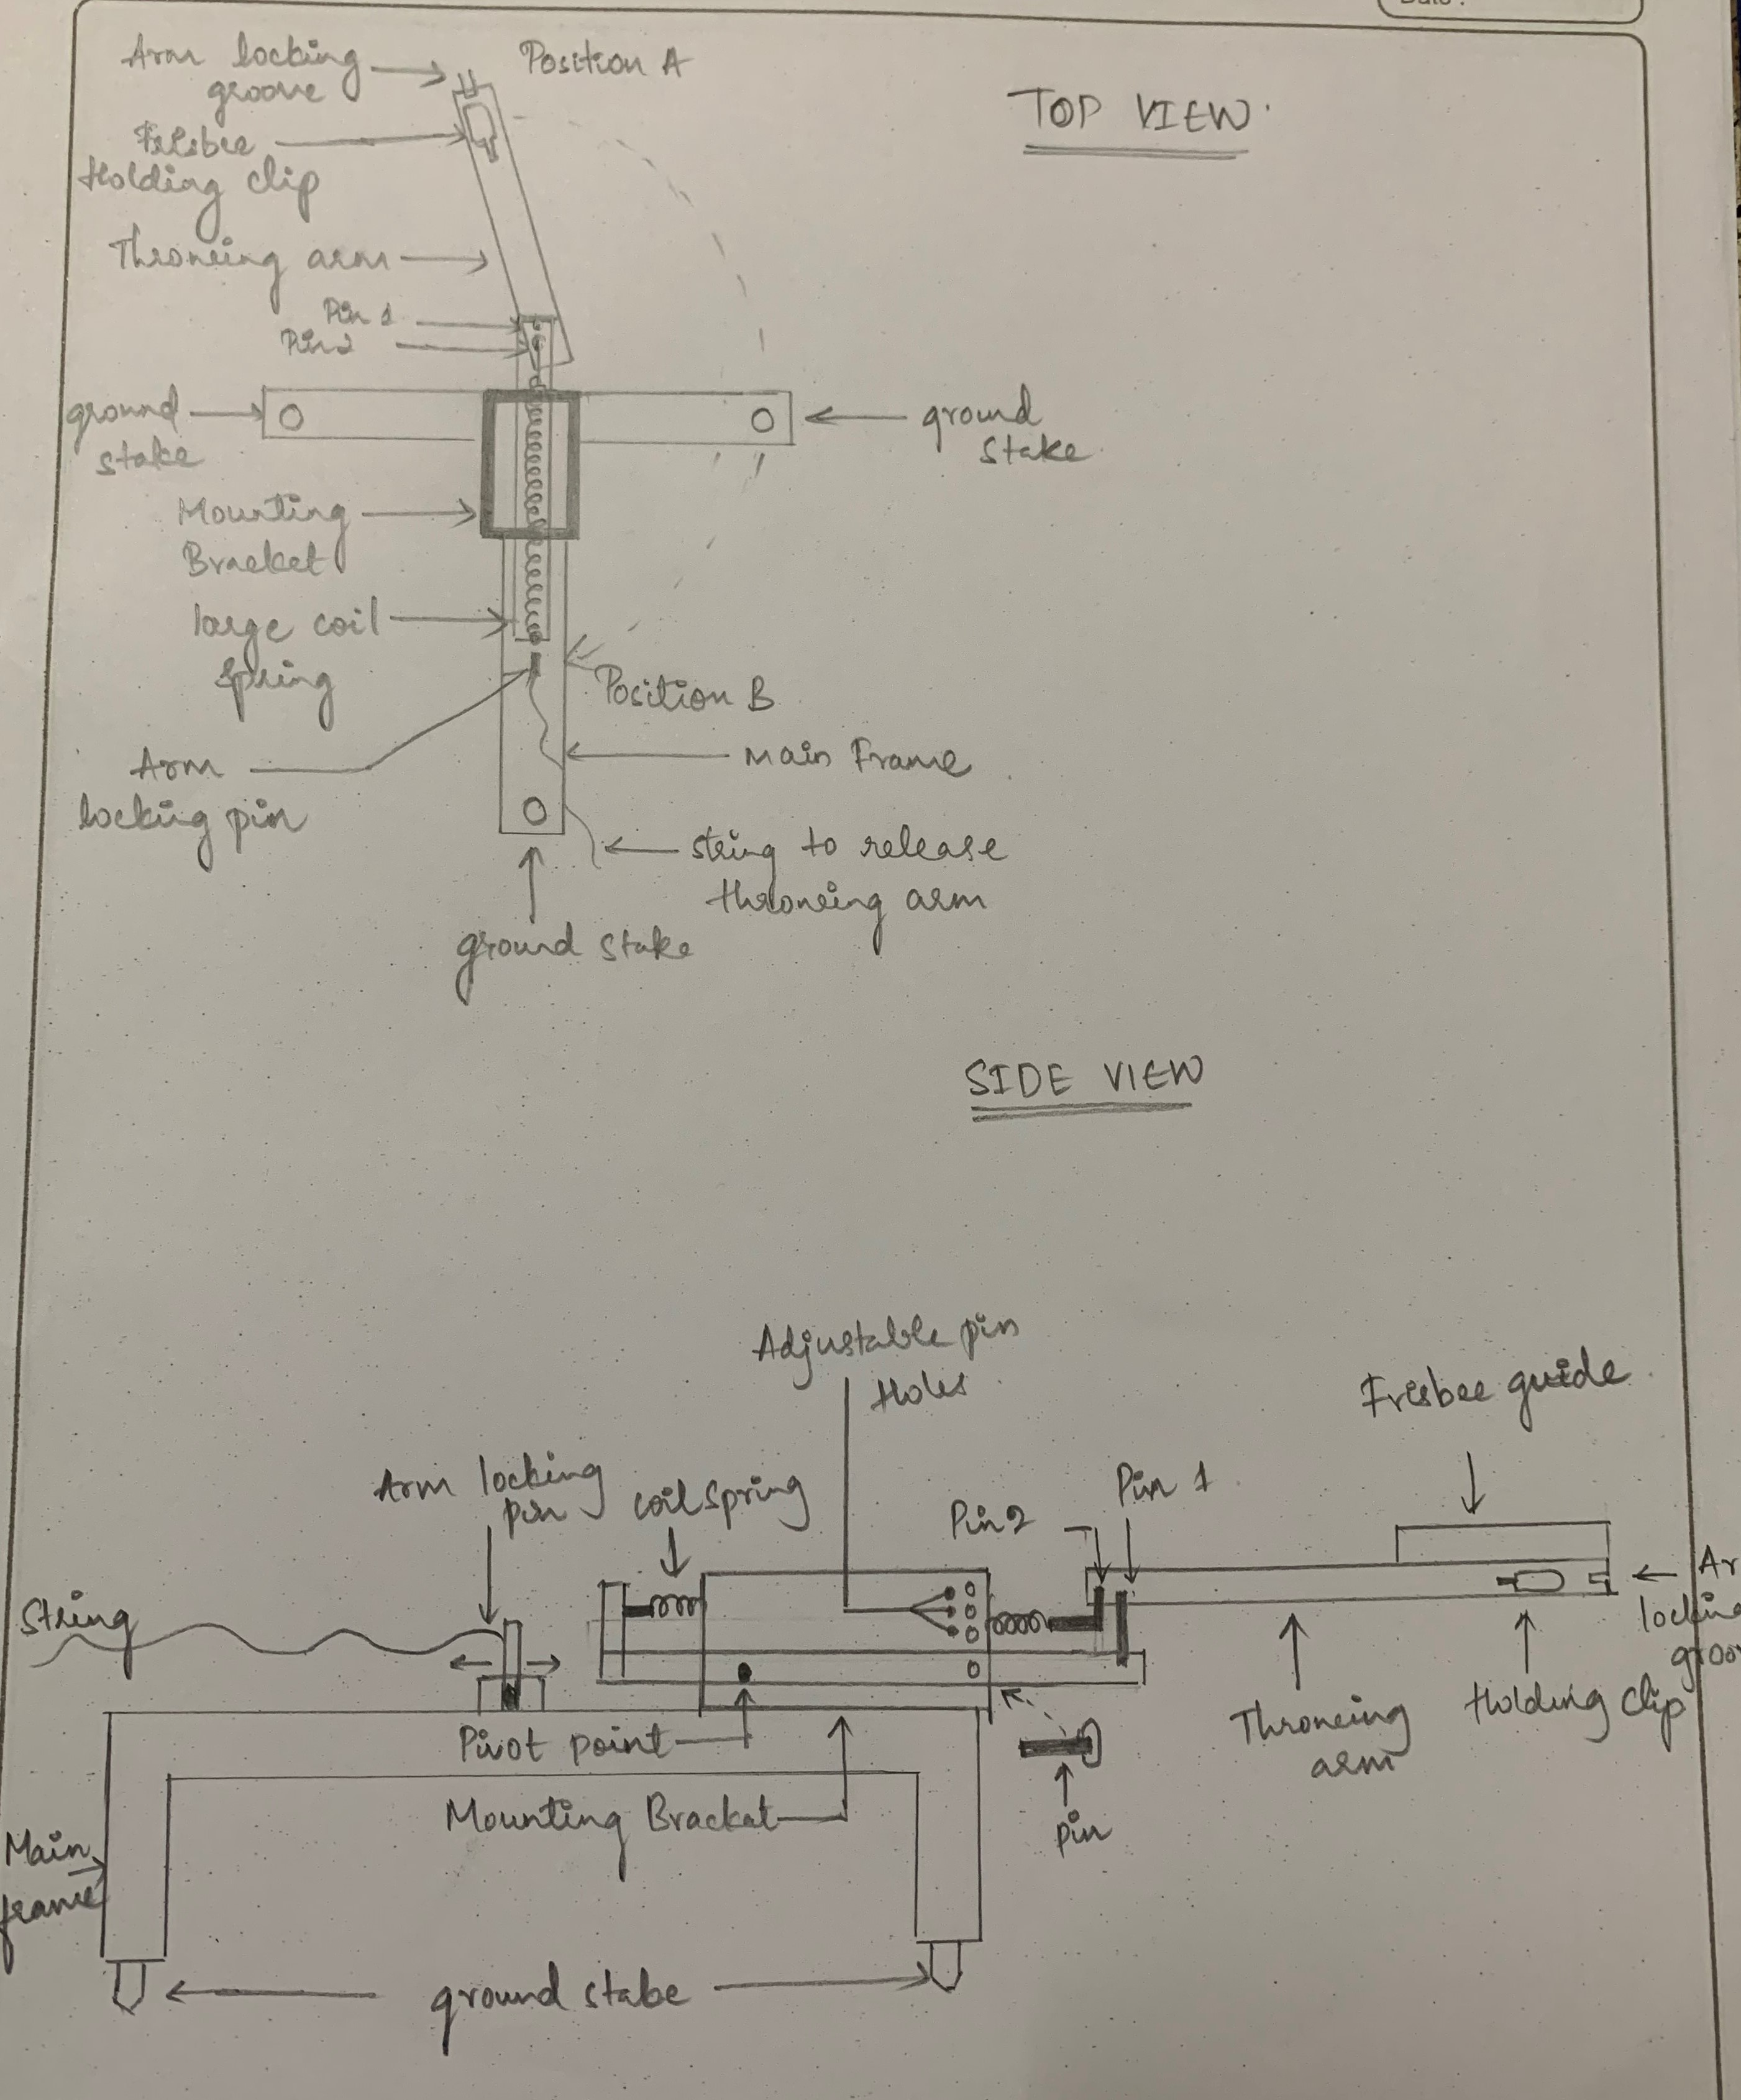 Date :
Arm locking
groove
Position A
TOP VIEW.
Frisbee
Holding clip
Throwing arm
Pin 1
Pin 2
ground
stake
ground
stake
Mounting
Bracket
large coil
spring
Position B
Arm
locking pin
Main Frame
string to release
throwing arm
ground stake
SIDE VIEW
Adjustable pin
Holes
Frisbee guide
Arm locking
pin
coil spring
Pin 2
Pin 1
String
Ar
locking
groo
Pivot point
Throwing
arm
Holding clip
Mounting Bracket
pin
Main
frame
ground stake